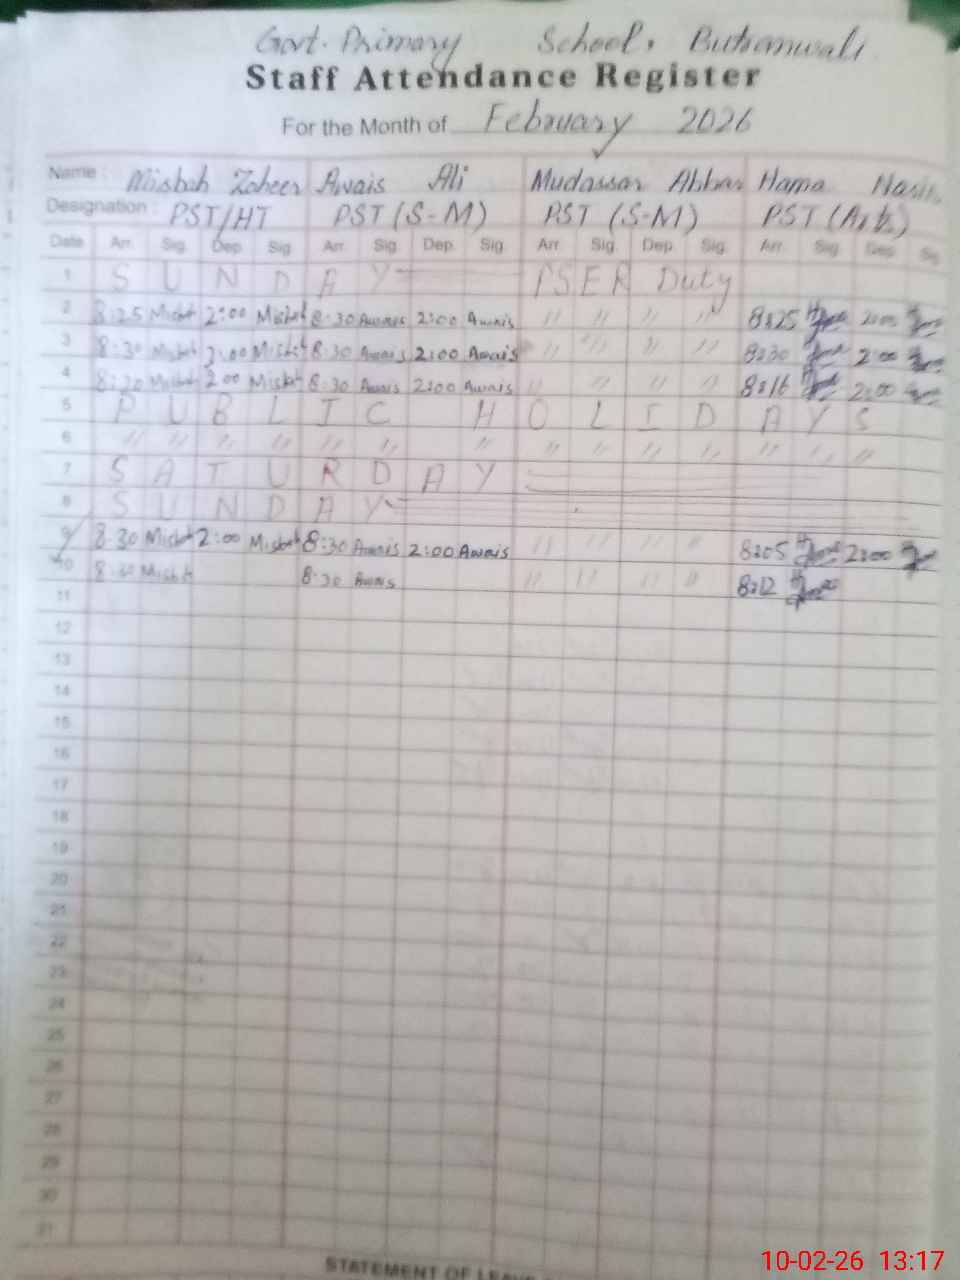 Govt. Primary School, Butranwali
Staff Attendance Register
For the Month of February 2026
Name : Misbah Zaheer Awais Ali Mudassar Abbas Hama
Designation : PST/HT PST (S-M) PST (S-M) PST (Arts)
Date Arr. Sig. Dep. Sig. Arr. Sig. Dep. Sig. Arr. Sig. Dep. Sig. Arr. Sig. Dep. Sig.
1 S U N D A Y PSER Duty
2 8:25 Misbah 2:00 Misbah 8:30 Awais 2:00 Awais " " " " 8:25 2:00
3 8:30 Misbah 2:00 Misbah 8:30 Awais 2:00 Awais " " " " 8:30 2:00
4 8:30 Misbah 2:00 Misbah 8:30 Awais 2:00 Awais " " " " 8:16 2:00
5 P U B L I C H O L I D A Y S
6 " " " " " " " " " " " " "
7 S A T U R D A Y
8 S U N D A Y
9 8:30 Misbah 2:00 Misbah 8:30 Awais 2:00 Awais " " " " 8:05 2:00
10 8:30 Misbah 8:30 Awais " " " " 8:12
11
12
13
14
15
16
17
18
19
20
21
22
23
24
25
26
27
28
29
30
31
STATEMENT OF LEAVE
10-02-26 13:17